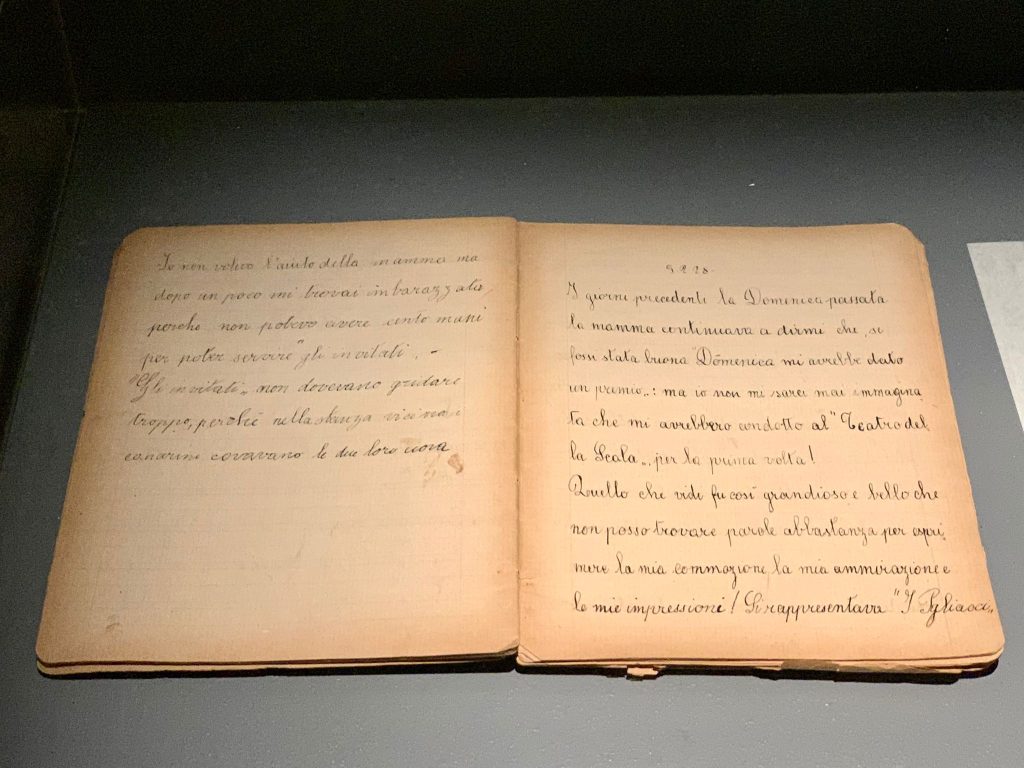 Io non volevo l'aiuto della mamma ma
dopo un poco mi trovai imbarazzata,
perchè non potevo avere cento mani
per poter servire "gli invitati„ -
"Gli invitati„ non dovevano gridare
troppo, perchè nella stanza vicina i
canarini covavano le due loro uova
I giorni precedenti la Domenica passata
la mamma continuava a dirmi che, se
fossi stata buona "Domenica mi avrebbe dato
un premio„: ma io non mi sarei mai immagina
ta che mi avrebbero condotto al "Teatro del
la Scala„, per la prima volta!
Quello che vidi fu così grandioso e bello che
non posso trovare parole abbastanza per espri
mere la mia commozione, la mia ammirazione e
le mie impressioni! Si rappresentava "I Pgliacci„